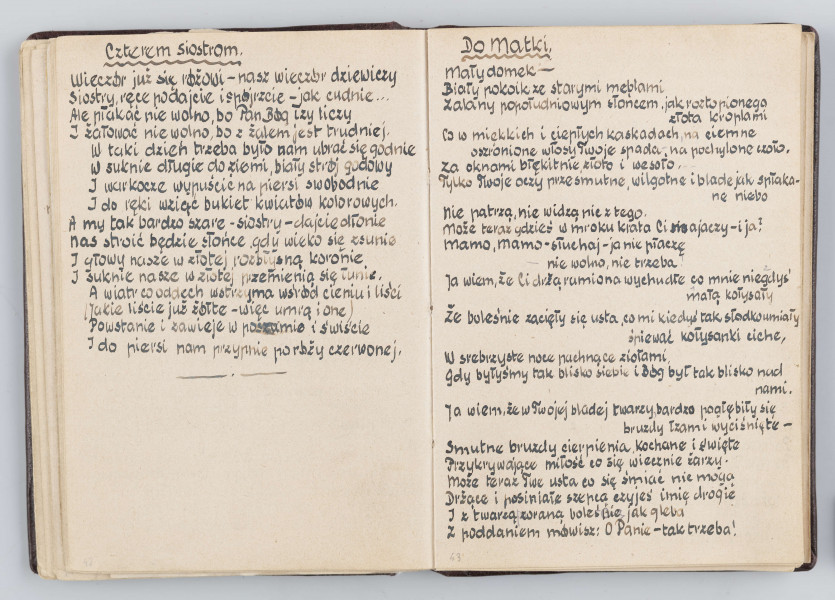 Czterem siostrom.
Wieczór już się różowi – nasz wieczór dziewiczy
Siostry, ręce podajcie i spójrzcie – jak cudnie...
Ale płakać nie wolno, bo Pan Bóg łzy liczy
I żałować nie wolno, bo z żalem jest trudniej.
W taki dzień trzeba było nam ubrać się godnie
W suknie długie do ziemi, biały strój godowy
I warkocze wypuścić na piersi swobodnie
I do ręki wziąć bukiet kwiatów kolorowych.
A my tak bardzo szare – siostry – dajcie dłonie
Nas stroić będzie słońce, gdy wieko się zsunie
I głowy nasze w złotej rozbłysną koronie
I suknie nasze w złotej przemienią się łunie.
A wiatr co oddech wstrzyma wśród cieniu i liści
(Jakie liście już żółte – więc umrą i one)
Powstanie i zawieje w poszumie i świście
I do piersi nam przypnie po róży czerwonej.
62
Do Matki,
Mały domek –
Biały pokoik ze starymi meblami
Zalany popołudniowym słońcem, jak roztopionego
złota kroplami
Co w miękkich i ciepłych kaskadach, na ciemne
oszronione włosy Twoje spada, na pochylone czoło.
Za oknami błękitnie złoto i wesoło.
Tylko Twoje oczy przesmutne, wilgotne i blade jak spłaka-
ne niebo
Nie patrzą, nie widzą nic z tego.
Może teraz gdzieś w mroku krata Ci majaczy – i ja?
Mamo, Mamo – słuchaj – ja nie płaczę
nie wolno, nie trzeba!
Ja wiem, że Ci drżą ramiona wychudłe co mnie niegdyś
małą kołysały
Że boleśnie zacięły się usta, co mi kiedyś tak słodko umiały
śpiewać kołysanki ciche,
W srebrzyste noce pachnące ziołami,
Gdy byłyśmy tak blisko siebie i Bóg był tak blisko nad
nami.
Ja wiem, że w Twojej bladej twarzy, bardzo pogłębiły się
bruzdy łzami wyciśnięte –
Smutne bruzdy cierpienia, kochane i święte
Przykrywające miłość co się wiecznie żarzy.
Może teraz Twe usta co się śmiać nie mogą
Drżące i posiniałe szepcą czyjeś imię drogie
I z twarzą zoraną boleśnie, jak gleba
Z poddaniem mówisz: O Panie – tak trzeba!
63